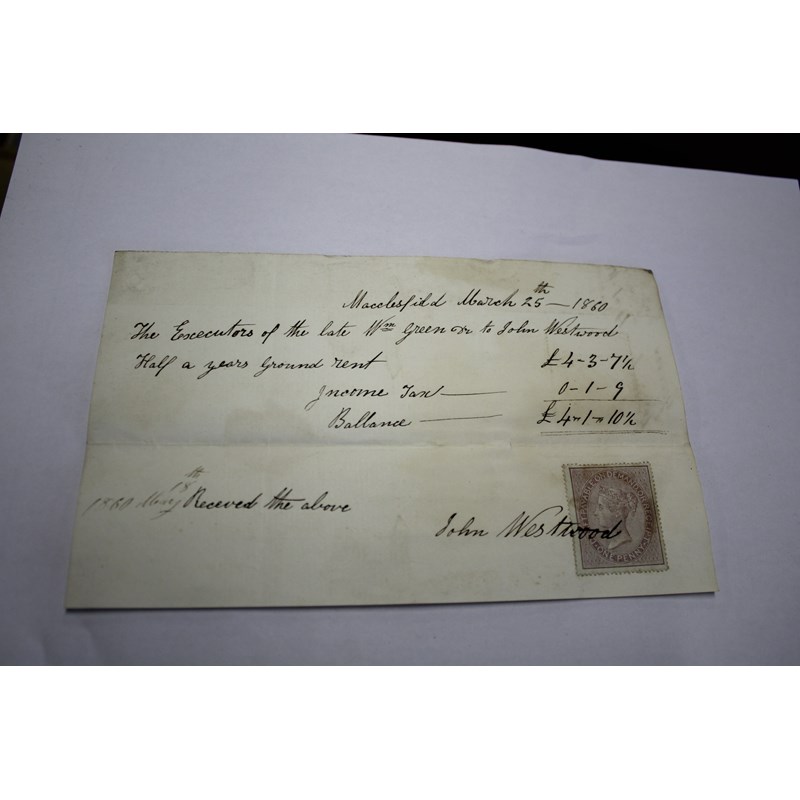 Macclesfield March 25th — 1860
The Executors of the late Wm Green Dr to John Westwood
Half a years Ground rent £ 4 - 3 - 7½
Income Tax — 0 - 1 - 9
Ballance — £ 4 " 1 " 10½
1860 May 18th Receved the above
John Westwood
DRAFT PAYABLE ON DEMAND OR RECEIPT
ONE PENNY